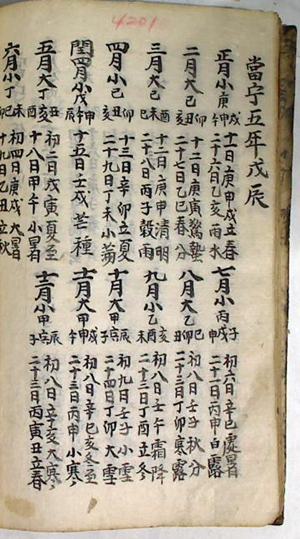 4201
當宁五年戊辰
正月小庚 戌午申 十一日庚申戌立春 二十六日乙亥雨水
二月大己 卯丑亥 十二日庚寅驚蟄 二十七日乙巳春分
三月大己 酉未巳 十三日庚申清明 二十八日丙子穀雨
四月小己 卯丑亥 十三日辛卯立夏 二十九日丁未小滿
閏四月小戊 申午辰 十五日壬戌芒種
五月大丁 丑亥酉 初二日戊寅夏至 十八日甲午小暑
六月小丁 未巳卯 初四日庚戌大暑 十九日乙丑立秋
七月小丙 子戌申 初六日辛巳處暑 二十一日丙申白露
八月大乙 巳卯丑 初八日壬子秋分 二十三日丁卯寒露
九月小乙 亥酉未 初八日壬午霜降 二十三日丁酉立冬
十月大甲 辰寅子 初九日壬子小雪 二十四日丁卯大雪
十一月大甲 戌申午 初八日辛巳冬至 二十三日丙申小寒
十二月小甲 辰寅子 初八日辛亥大寒 二十三日丙寅立春